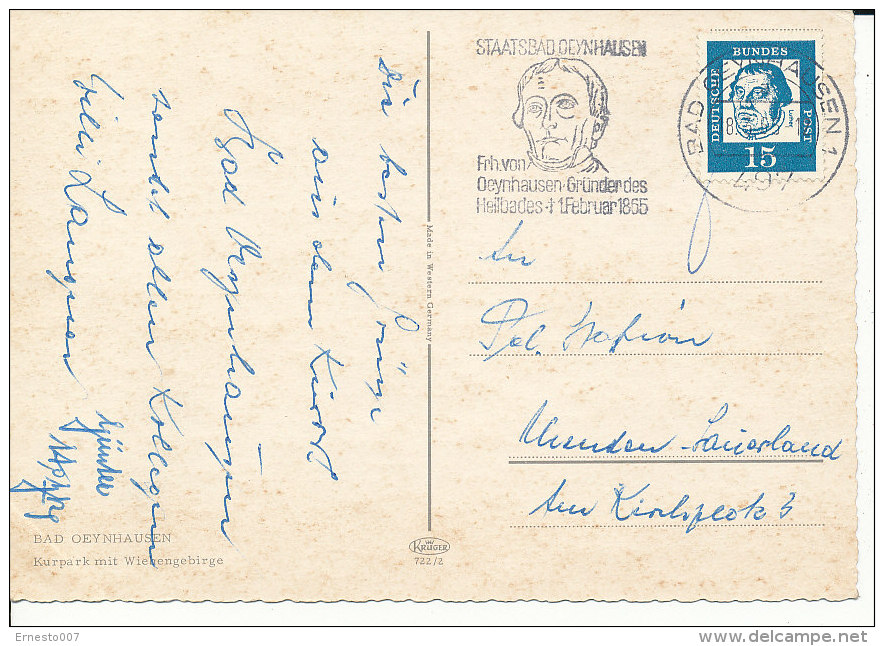 Die besten Grüße
aus dem Kurort
Bad Oeynhausen
sendet allen Kollegen
Willi
Günter
BAD OEYNHAUSEN
Kurpark mit Wiehengebirge
Made in Western Germany
KRÜGER
722/2
STAATSBAD OEYNHAUSEN
Frh. von
Oeynhausen · Gründer des
Heilbades · † 1. Februar 1865
DEUTSCHE
BUNDES
POST
15
BAD OEYNHAUSEN 1
An
Pol. Station
Menden-Sauerland
Am Kirchplatz 3
Ernesto007
delcampe.net